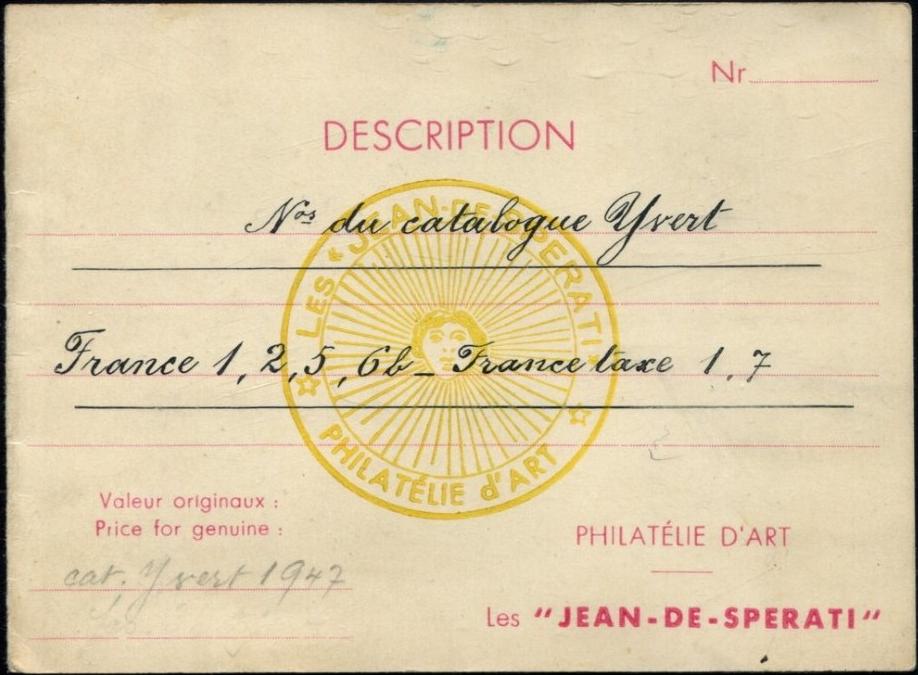 Nr
DESCRIPTION
Nos du catalogue Yvert
LES "JEAN-DE-SPERATI"
France 1, 2, 5, 6b — France taxe 1, 7
PHILATÉLIE d'ART
Valeur originaux :
Price for genuine :
cat. Yvert 1947
PHILATÉLIE D'ART
Les "JEAN-DE-SPERATI"